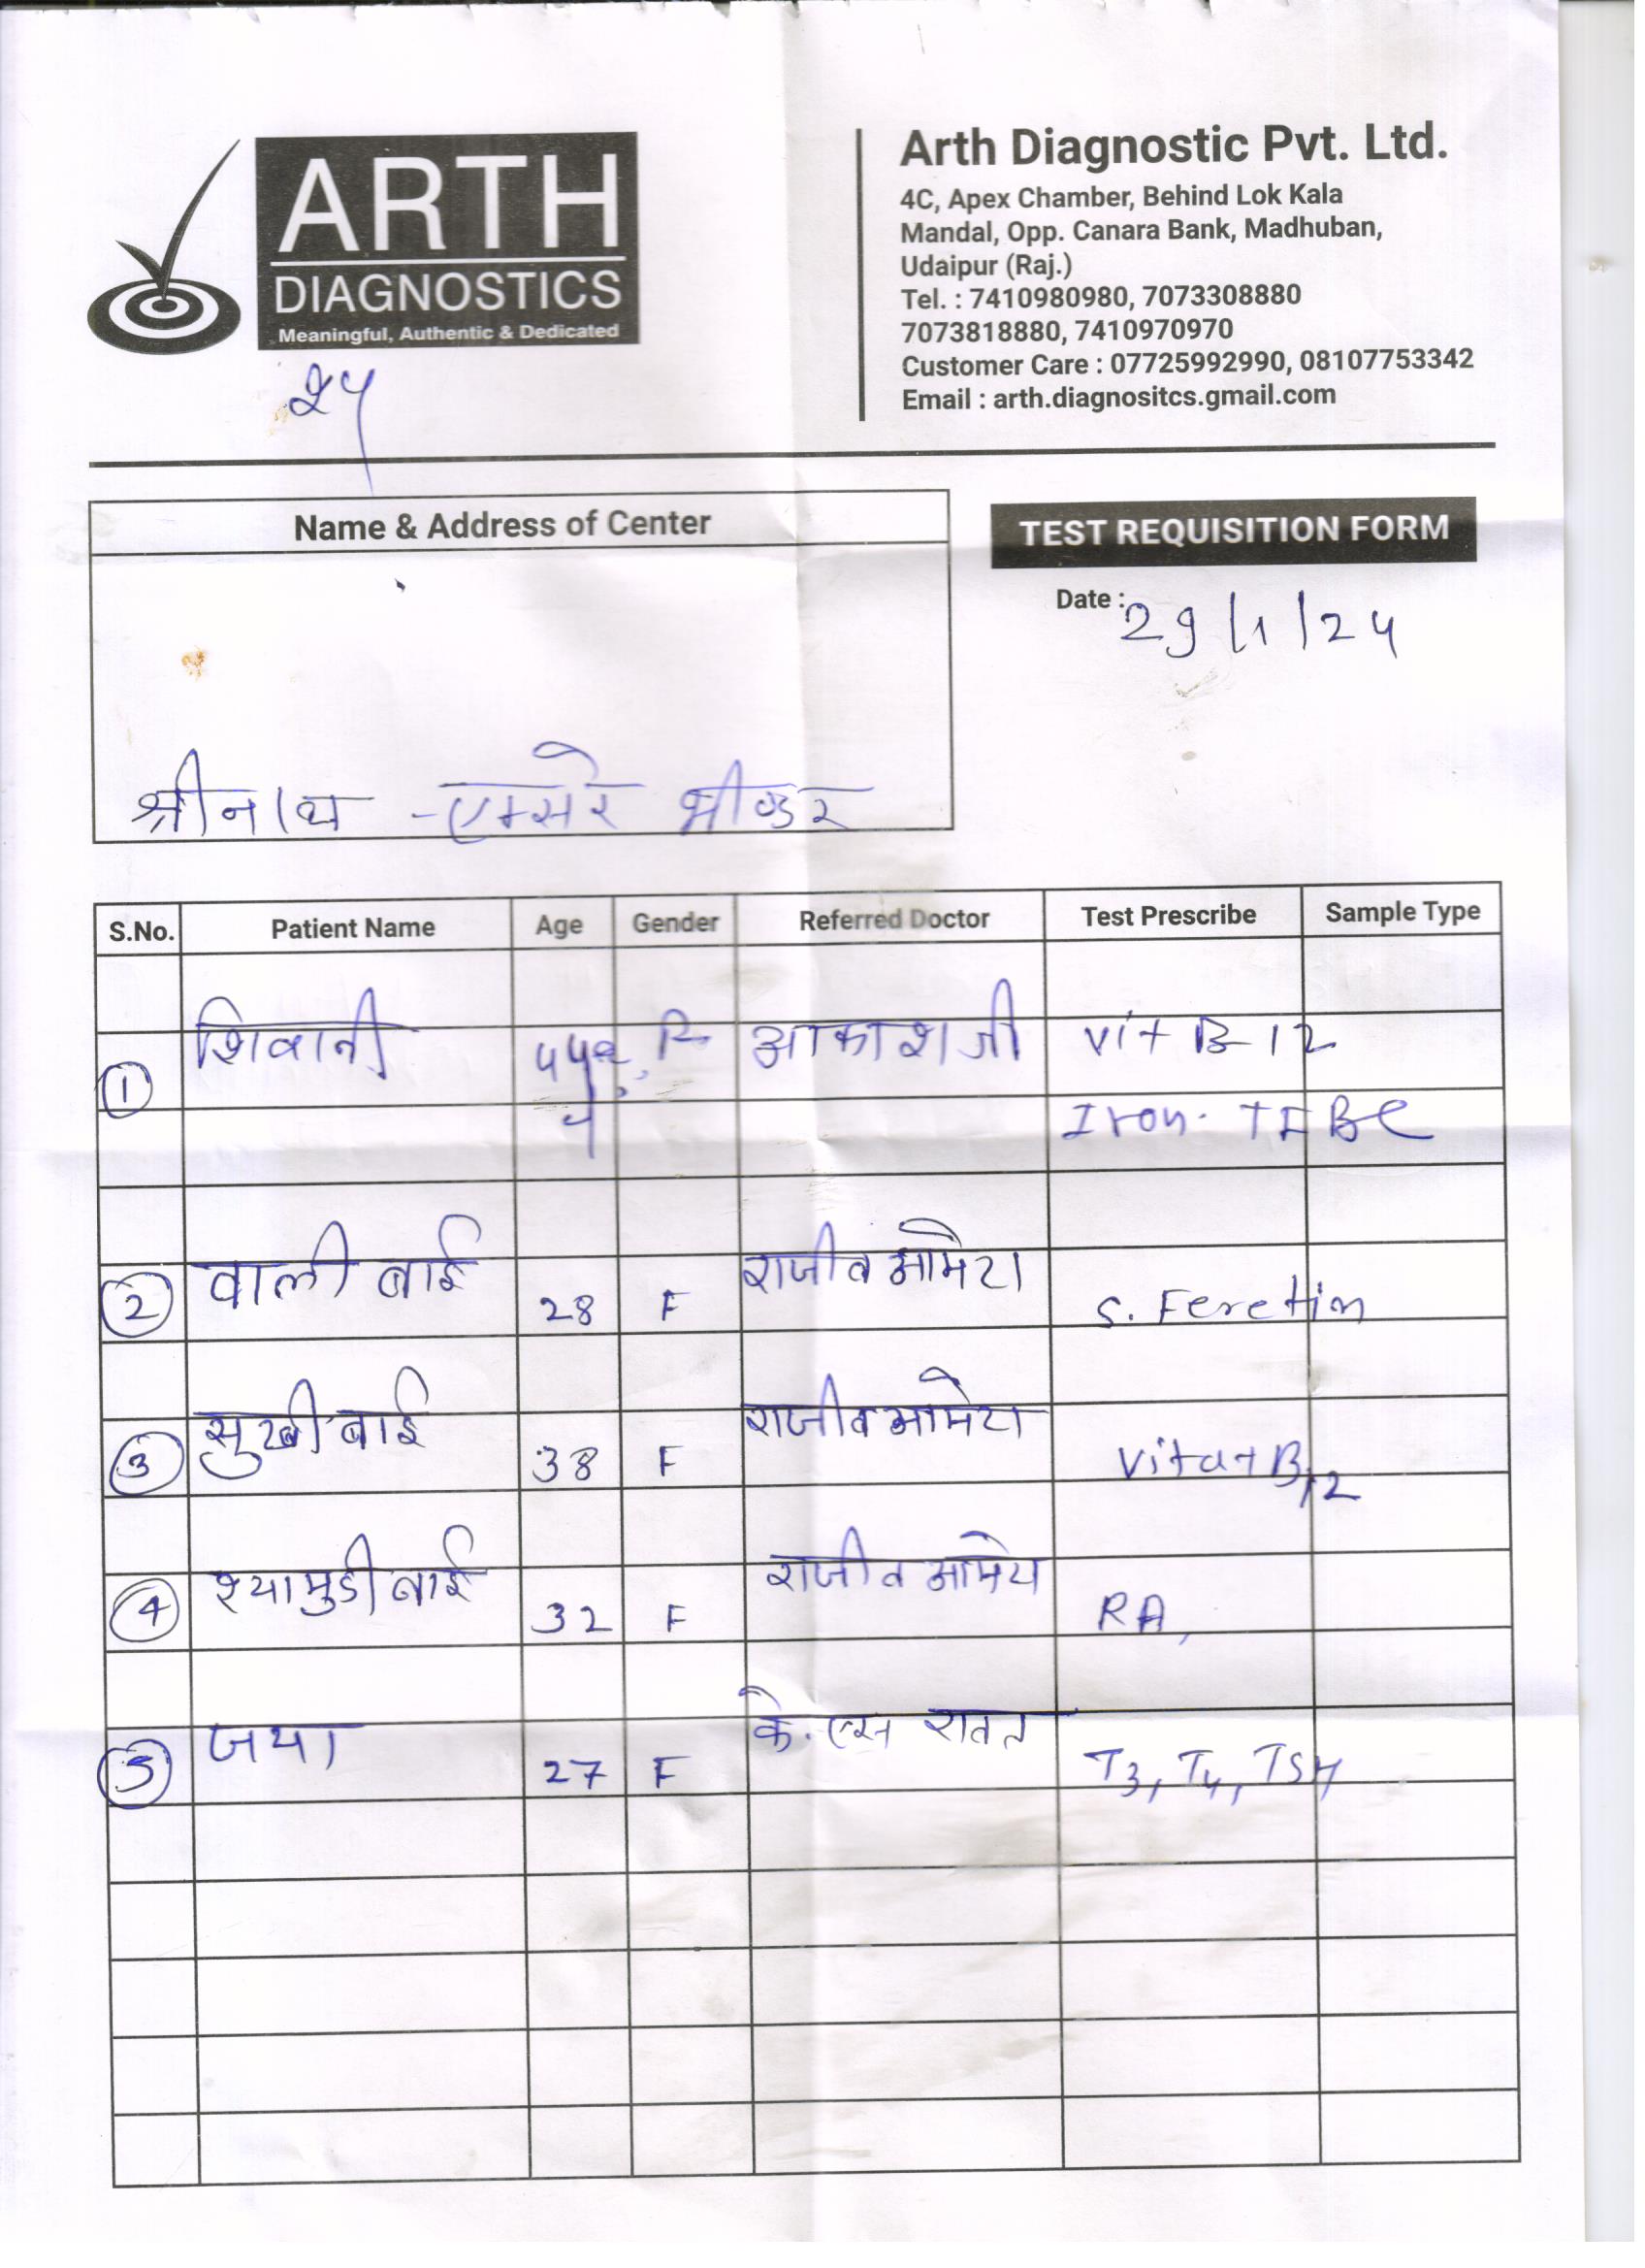 ARTH
DIAGNOSTICS
Meaningful, Authentic & Dedicated
Arth Diagnostic Pvt. Ltd.
4C, Apex Chamber, Behind Lok Kala
Mandal, Opp. Canara Bank, Madhuban,
Udaipur (Raj.)
Tel. : 7410980980, 7073308880
7073818880, 7410970970
Customer Care : 07725992990, 08107753342
Email : arth.diagnositcs.gmail.com
Name & Address of Center
TEST REQUISITION FORM
Date : 29/1/24
श्रीनाथ - एक्सरे भीण्डर
S.No. Patient Name Age Gender Referred Doctor Test Prescribe Sample Type
1 शिवानी F आकाश जी Vit B-12
Iron. TIBC
2 वाली बाई 28 F राजीव आमेटा S. Ferettin
3 सुखी बाई 38 F राजीव आमेटा Vita+B12
4 श्यामुडी बाई 32 F राजीव आमेटा RA,
5 जया 27 F के. एस रावत T3, T4, TSH